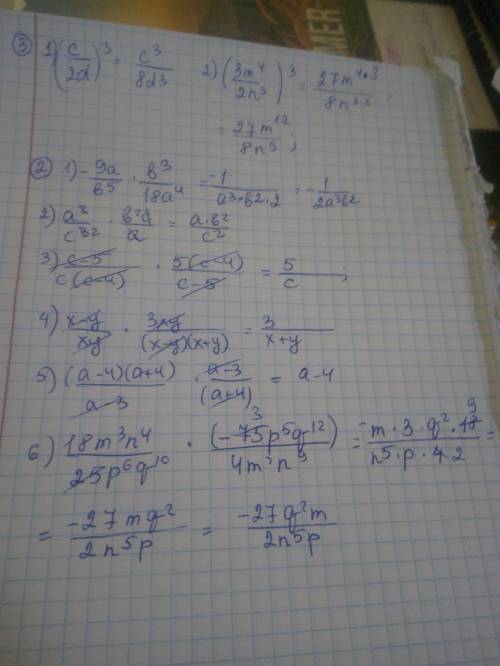 ③ 1) (c/2d)³ = c³/8d³   2) (3m⁴/2n³)³ = 27m⁴·³/8n³·³
= 27m¹²/8n⁹;
② 1) -9a/b⁵ · b³/18a⁴ = -1/a³·b²·2 = -1/2a³b²
2) a²/c³ · b²c/a = a·b²/c²
3) c-5/c(c-4) · 5(c-4)/c-5 = 5/c;
4) x-y/xy · 3xy/(x-y)(x+y) = 3/x+y
5) (a-4)(a+4)/a-3 · a-3/(a+4) = a-4
6) 18m³n⁴/25p⁶q¹⁰ · (-75p⁵q¹²)/4m²n⁹ = -m·3·q²·18 9/n⁵·p·4 2 =
= -27mq²/2n⁵p = -27q²m/2n⁵p